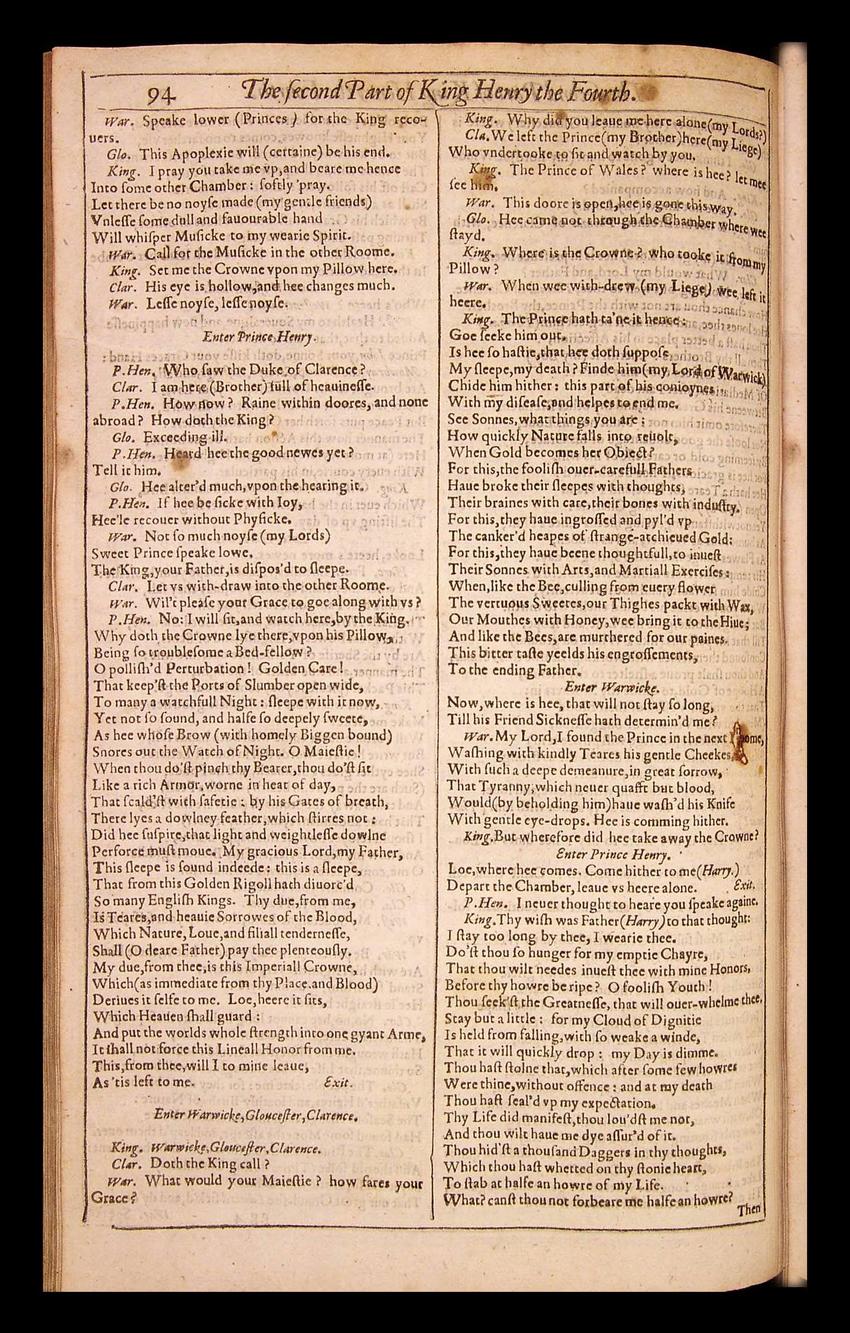 94 The ſecond Part of King Henry the Fourth.
War. Speake lower (Princes) for the King reco-
uers.
Glo. This Apoplexie will (certaine) be his end.
King. I pray you take me vp, and beare me hence
Into ſome other Chamber: ſoftly 'pray.
Let there be no noyſe made (my gentle friends)
Vnleſſe ſome dull and fauourable hand
Will whiſper Muſicke to my wearie Spirit.
War. Call for the Muſicke in the other Roome.
King. Set me the Crowne vpon my Pillow here.
Clar. His eye is hollow, and hee changes much.
War. Leſſe noyſe, leſſe noyſe.
Enter Prince Henry.
P.Hen. Who ſaw the Duke of Clarence?
Clar. I am here (Brother) full of heauineſſe.
P.Hen. How now? Raine within doores, and none
abroad? How doth the King?
Glo. Exceeding ill.
P.Hen. Heard hee the good newes yet?
Tell it him.
Glo. Hee alter'd much, vpon the hearing it.
P.Hen. If hee be ſicke with Ioy,
Hee'le recouer without Phyſicke.
War. Not ſo much noyſe (my Lords)
Sweet Prince ſpeake lowe,
The King, your Father, is diſpos'd to ſleepe.
Clar. Let vs with-draw into the other Roome.
War. Wil't pleaſe your Grace to goe along with vs?
P.Hen. No: I will ſit, and watch here, by the King.
Why doth the Crowne lye there, vpon his Pillow,
Being ſo troubleſome a Bed-fellow?
O polliſh'd Perturbation! Golden Care!
That keep'ſt the Ports of Slumber open wide,
To many a watchfull Night: ſleepe with it now,
Yet not ſo ſound, and halfe ſo deepely ſweete,
As hee whoſe Brow (with homely Biggen bound)
Snores out the Watch of Night. O Maieſtie!
When thou do'ſt pinch thy Bearer, thou do'ſt ſit
Like a rich Armor, worne in heat of day,
That ſcald'ſt with ſafetie: by his Gates of breath,
There lyes a dowlney feather, which ſtirres not:
Did hee ſuſpire, that light and weightleſſe dowlne
Perforce muſt moue. My gracious Lord, my Father,
This ſleepe is ſound indeede: this is a ſleepe,
That from this Golden Rigoll hath diuorc'd
So many Engliſh Kings. Thy due, from me,
Is Teares, and heauie Sorrowes of the Blood,
Which Nature, Loue, and filiall tenderneſſe,
Shall (O deare Father) pay thee plenteouſly.
My due, from thee, is this Imperiall Crowne,
Which (as immediate from thy Place, and Blood)
Deriues it ſelfe to me. Loe, heere it ſits,
Which Heauen ſhall guard:
And put the worlds whole ſtrength into one gyant Arme,
It ſhall not force this Lineall Honor from me.
This, from thee, will I to mine leaue,
As 'tis left to me. Exit.
Enter Warwicke, Glouceſter, Clarence.
King. Warwicke, Glouceſter, Clarence.
Clar. Doth the King call?
War. What would your Maieſtie? how fares your
Grace?
King. Why did you leaue me here alone (my Lords?)
Cla. We left the Prince (my Brother) here (my Liege)
Who vndertooke to ſit and watch by you.
King. The Prince of Wales? where is hee? let mee
ſee him.
War. This doore is open, hee is gone this way.
Glo. Hee came not through the Chamber where wee
ſtayd.
King. Where is the Crowne? who tooke it from my
Pillow?
War. When wee with-drew (my Liege) wee left it
heere.
King. The Prince hath ta'ne it hence:
Goe ſeeke him out.
Is hee ſo haſtie, that hee doth ſuppoſe
My ſleepe, my death? Finde him (my Lord of Warwick)
Chide him hither: this part of his conioynes
With my diſeaſe, and helpes to end me.
See Sonnes, what things you are:
How quickly Nature falls into reuolt,
When Gold becomes her Obiect?
For this, the fooliſh ouer-carefull Fathers
Haue broke their ſleepes with thoughts,
Their braines with care, their bones with induſtry.
For this, they haue ingroſſed and pyl'd vp
The canker'd heapes of ſtrange-atchieued Gold:
For this, they haue beene thoughtfull, to inueſt
Their Sonnes with Arts, and Martiall Exerciſes:
When, like the Bee, culling from euery flower
The vertuous Sweetes, our Thighes packt with Wax,
Our Mouthes with Honey, wee bring it to the Hiue;
And like the Bees, are murthered for our paines.
This bitter taſte yeelds his engroſſements,
To the ending Father.
Enter Warwicke.
Now, where is hee, that will not ſtay ſo long,
Till his Friend Sickneſſe hath determin'd me?
War. My Lord, I found the Prince in the next
Waſhing with kindly Teares his gentle Cheekes,
With ſuch a deepe demeanure, in great ſorrow,
That Tyranny, which neuer quafft but blood,
Would (by beholding him) haue waſh'd his Knife
With gentle eye-drops. Hee is comming hither.
King. But wherefore did hee take away the Crowne?
Enter Prince Henry.
Loe, where hee comes. Come hither to me (Harry.)
Depart the Chamber, leaue vs heere alone. Exit.
P.Hen. I neuer thought to heare you ſpeake againe.
King. Thy wiſh was Father (Harry) to that thought:
I ſtay too long by thee, I wearie thee.
Do'ſt thou ſo hunger for my emptie Chayre,
That thou wilt needes inueſt thee with mine Honors,
Before thy howre be ripe? O fooliſh Youth!
Thou ſeek'ſt the Greatneſſe, that will ouer-whelme thee.
Stay but a little: for my Cloud of Dignitie
Is held from falling, with ſo weake a winde,
That it will quickly drop: my Day is dimme.
Thou haſt ſtolne that, which after ſome few howres
Were thine, without offence: and at my death
Thou haſt ſeal'd vp my expectation.
Thy Life did manifeſt, thou lou'dſt me not,
And thou wilt haue me dye aſſur'd of it.
Thou hid'ſt a thouſand Daggers in thy thoughts,
Which thou haſt whetted on thy ſtonie heart,
To ſtab at halfe an howre of my Life.
What? canſt thou not forbeare me halfe an howre?
Then